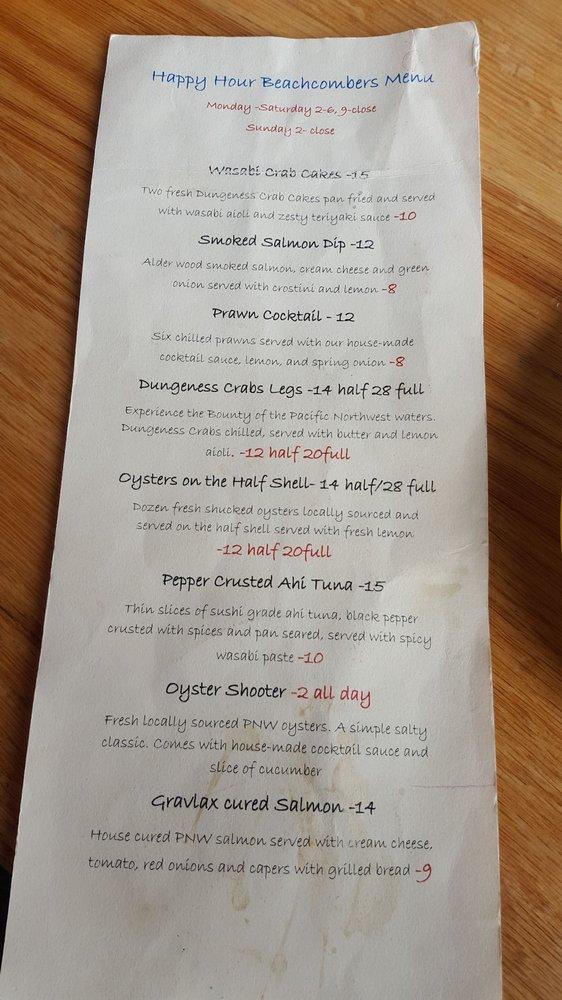 Happy Hour Beachcombers Menu
Monday -Saturday 2-6, 9-close
Sunday 2- close
Wasabi Crab Cakes -15
Two fresh Dungeness Crab Cakes pan fried and served
with wasabi aioli and zesty teriyaki sauce -10
Smoked Salmon Dip -12
Alder wood smoked salmon, cream cheese and green
onion served with crostini and lemon -8
Prawn Cocktail - 12
Six chilled prawns served with our house-made
cocktail sauce, lemon, and spring onion -8
Dungeness Crabs Legs -14 half 28 full
Experience the Bounty of the Pacific Northwest waters.
Dungeness Crabs chilled, served with butter and lemon
aioli. -12 half 20full
Oysters on the Half Shell- 14 half/28 full
Dozen fresh shucked oysters locally sourced and
served on the half shell served with fresh lemon
-12 half 20full
Pepper Crusted Ahi Tuna -15
Thin slices of sushi grade ahi tuna, black pepper
crusted with spices and pan seared, served with spicy
wasabi paste -10
Oyster Shooter -2 all day
Fresh locally sourced PNW oysters. A simple salty
classic. Comes with house-made cocktail sauce and
slice of cucumber
Gravlax cured Salmon -14
House cured PNW salmon served with cream cheese,
tomato, red onions and capers with grilled bread -9